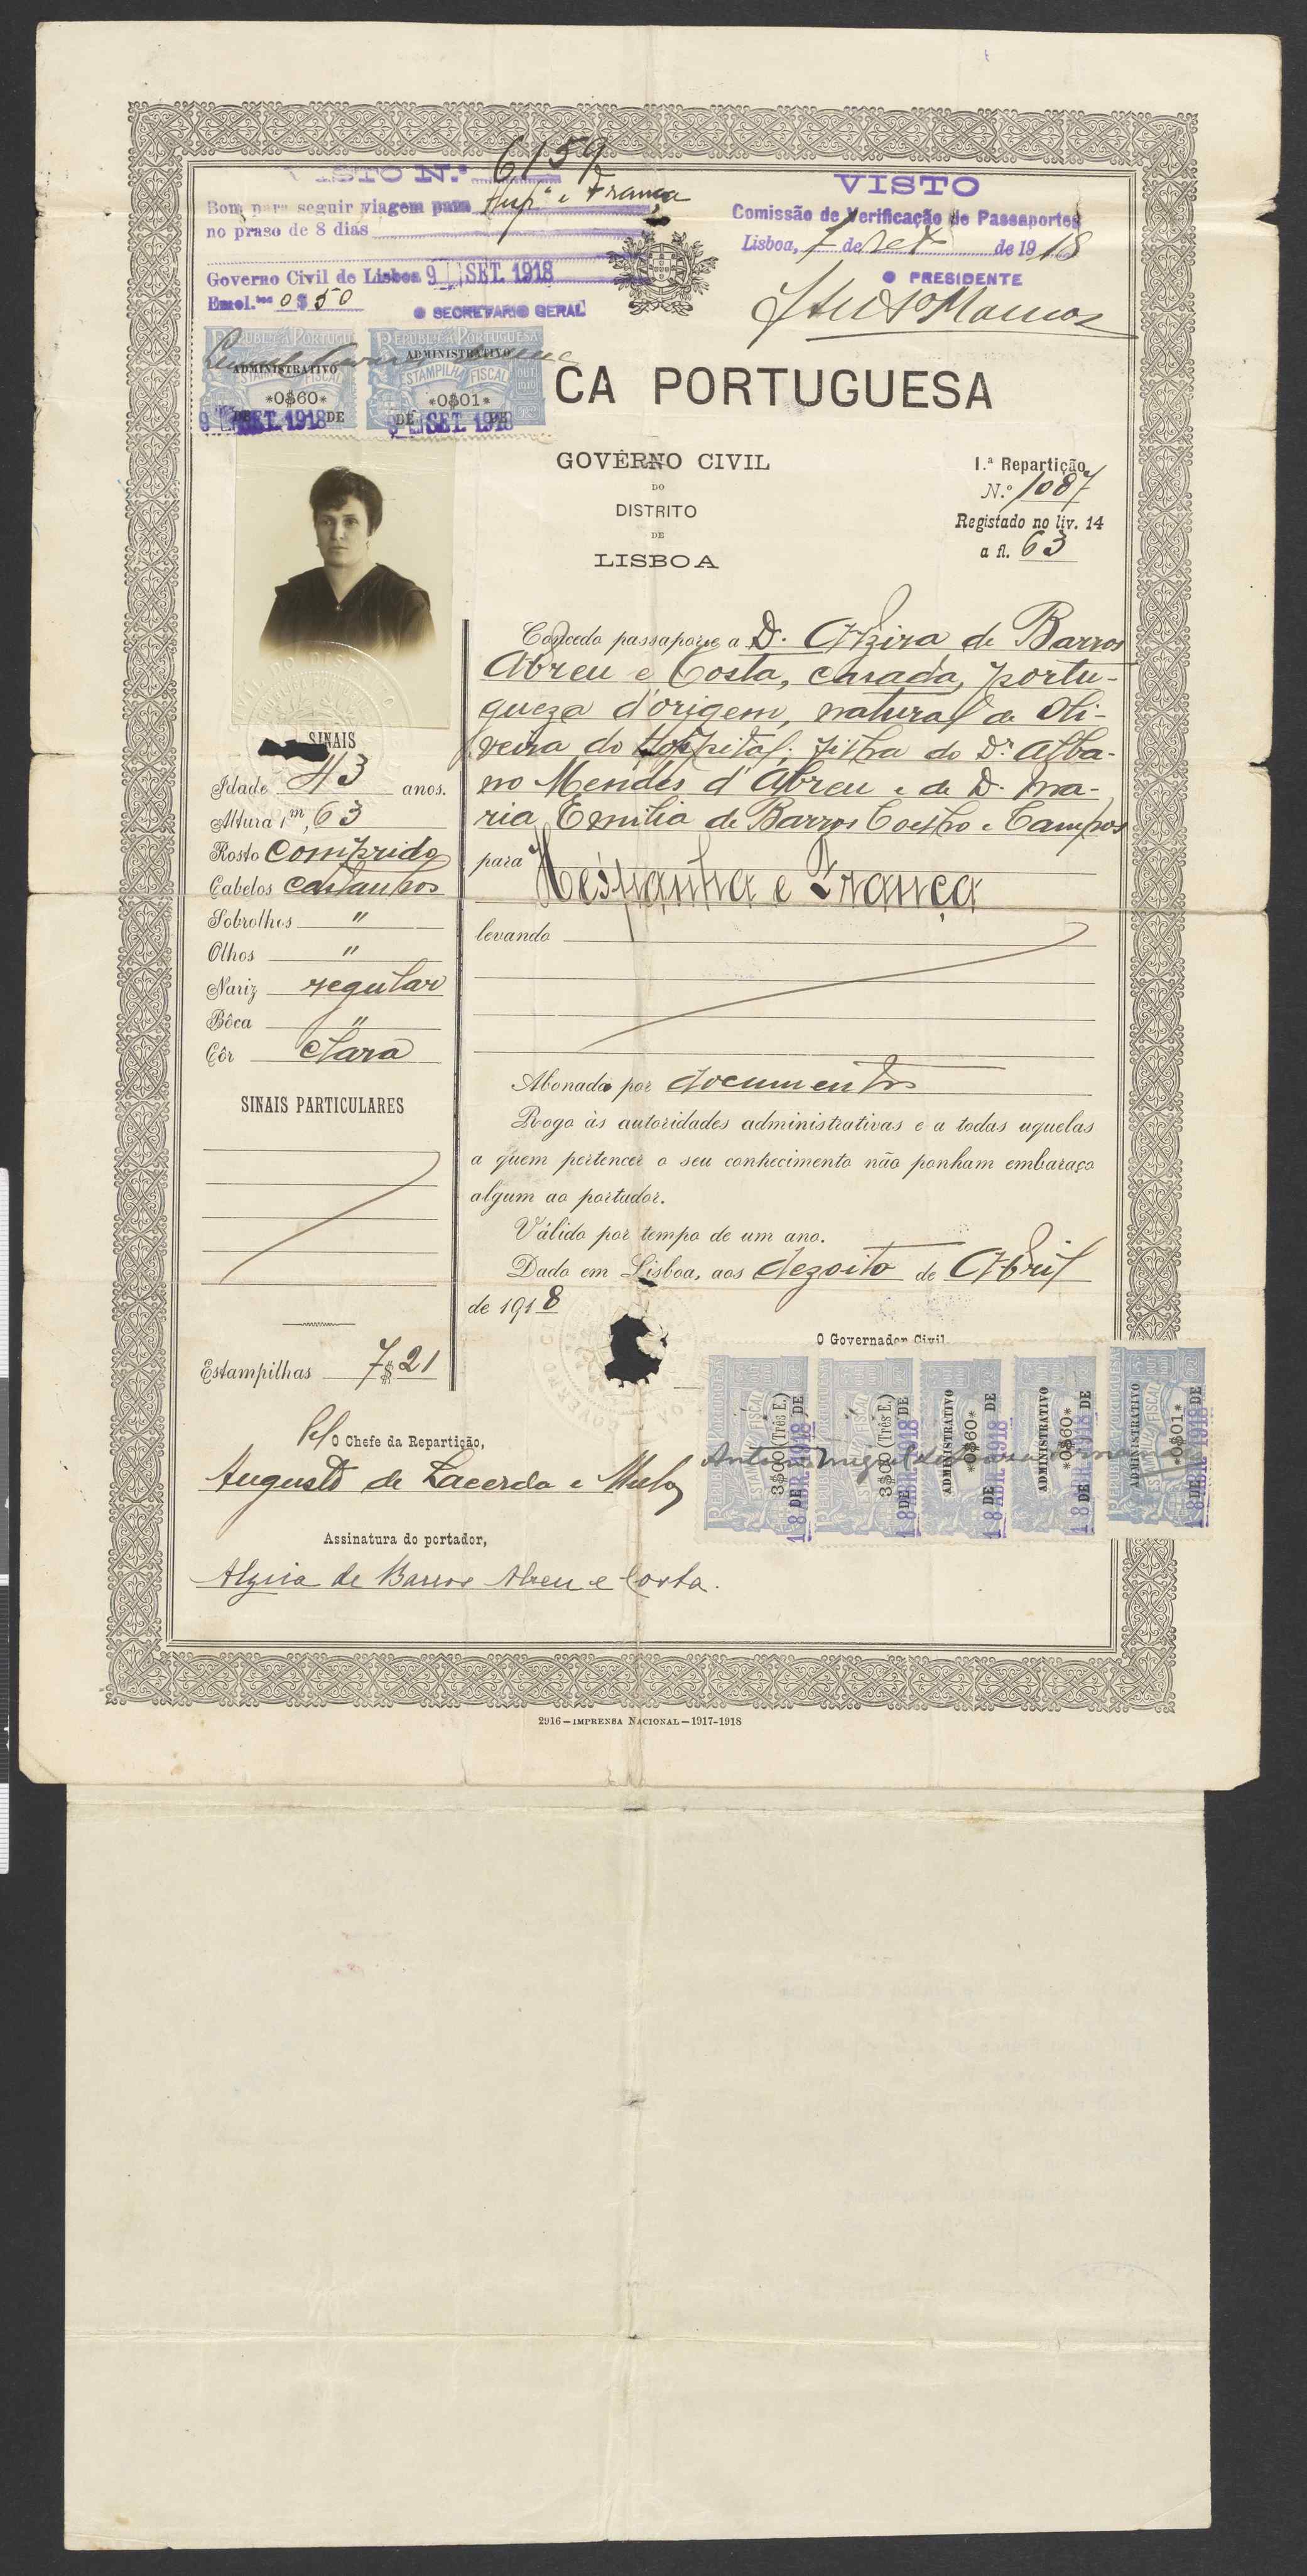 VISTO N.º 6159
Bom para seguir viagem para Hespª e França
no praso de 8 dias
Governo Civil de Lisboa 9 SET. 1918
Emol.tos 0$50
O SECRETARIO GERAL
VISTO
Comissão de Verificação de Passaportes
Lisboa, 7 de Set de 1918
O PRESIDENTE
REPUBLICA PORTUGUESA
ADMINISTRATIVO
ESTAMPILHA FISCAL
*0$60*
9 SET. 1918 DE
REPUBLICA PORTUGUESA
ADMINISTRATIVO
ESTAMPILHA FISCAL
*0$01*
DE 9 SET. 1918
CA PORTUGUESA
GOVÊRNO CIVIL
DO
DISTRITO
DE
LISBOA
1.ª Repartição
N.º 1087
Registado no liv. 14
a fl. 63
Concedo passaporte a D. Alzira de Barros
Abreu e Costa, casada, portu-
gueza d'origem, natural de Oli-
veira do Hospital; filha do Dr. Alba-
no Mendes d'Abreu e de D. Ma-
ria Emilia de Barros Coelho e Campos
para Hespanha e França
levando
Abonada por documentos
Rogo às autoridades administrativas e a todas aquelas
a quem pertencer o seu conhecimento não ponham embaraço
algum ao portador.
Válido por tempo de um ano.
Dado em Lisboa, aos dezoito de Abril
de 1918
O Governador Civil
SINAIS
Idade 43 anos.
Altura 1m,63
Rosto comprido
Cabelos castanhos
Sobrolhos "
Olhos "
Nariz regular
Bôca "
Côr clara
SINAIS PARTICULARES
Estampilhas 7$21
Pel O Chefe da Repartição,
Augusto de Lacerda e Mello
Assinatura do portador,
Alzira de Barros Abreu e Costa.
3$00 (Três E.)
18 ABR. 1918 DE
3$00 (Três E.)
18 ABR. 1918 DE
ADMINISTRATIVO
*0$60*
18 ABR. 1918 DE
ADMINISTRATIVO
*0$60*
18 ABR. 1918 DE
ADMINISTRATIVO
*0$01*
18 ABR. 1918 DE
Antonio Miguel de
2916—IMPRENSA NACIONAL—1917-1918